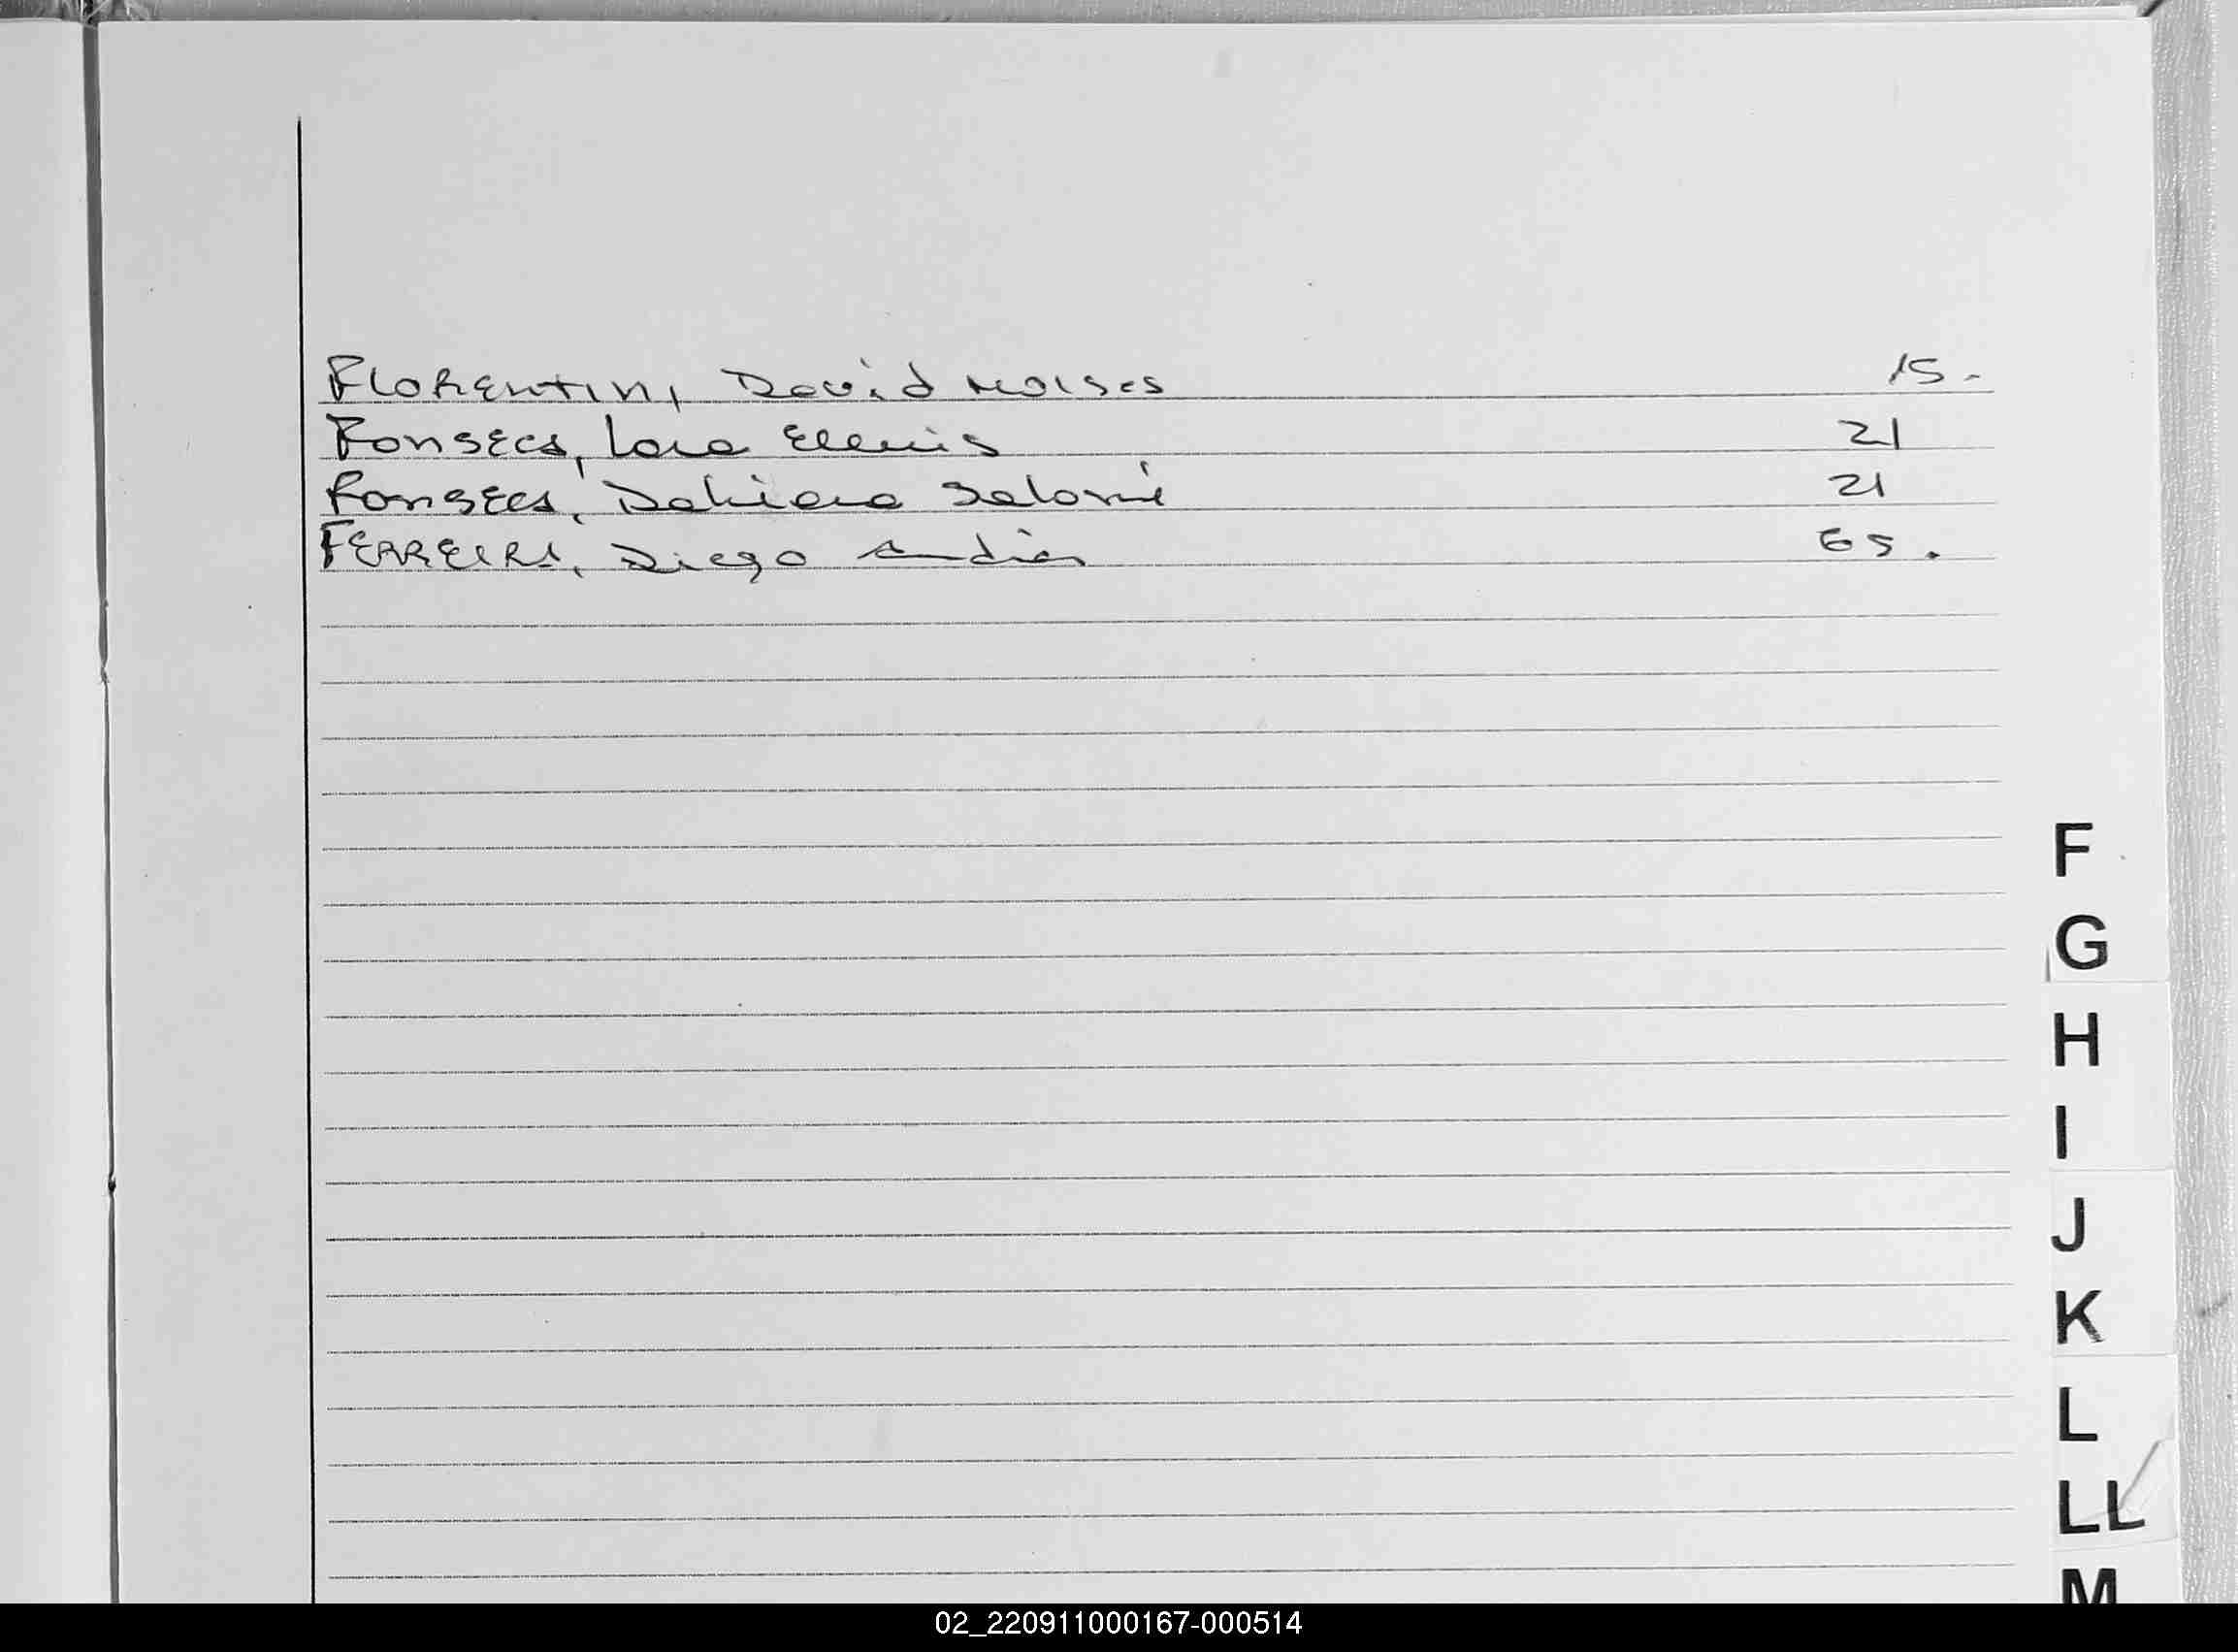 FLORENTIN, David Moises 15.
Fonseca, Lara Elenis 21
Fonseca, Dahiana Salomé 21
FERREIRA, Diego Andrés 65.
F
G
H
I
J
K
L
LL
M
02_220911000167-000514